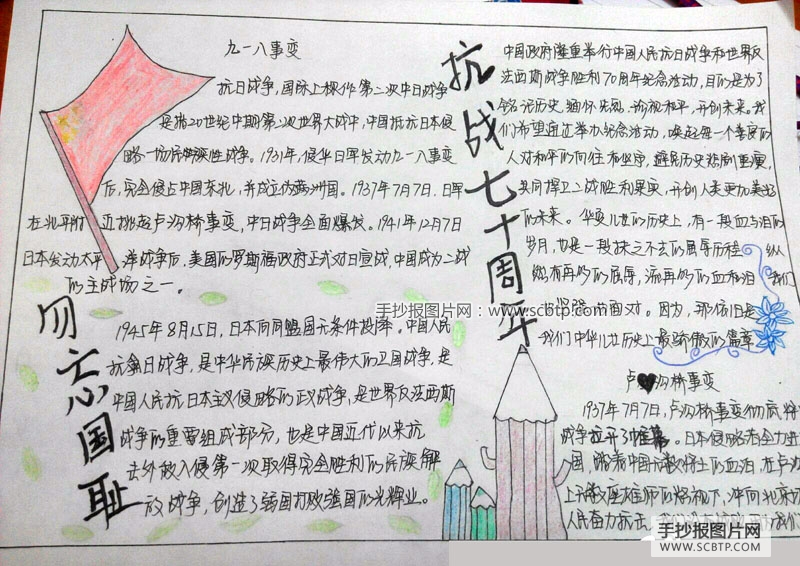 九一八事变
抗日战争,国际上称作第二次中日战争
是指20世纪中期第二次世界大战中,中国抵抗日本侵
略一场民族性战争。1931年,侵华日军发动九一八事变
后,完全侵占中国东北,并成立伪满洲国。1937年7月7日,日军
在北平附近挑起卢沟桥事变,中日战争全面爆发。1941年12月7日
日本发动太平洋战争后,美国的罗斯福政府正式对日宣战,中国成为二战
的主战场之一。
勿忘国耻
1945年8月15日,日本向同盟国无条件投降。中国人民
抗日战争,是中华民族历史上最伟大的卫国战争,是
中国人民抗日本主义侵略的正义战争,是世界反法西斯
战争的重要组成部分,也是中国近代以来抗
击外敌入侵第一次取得完全胜利的民族解
放战争,创造了弱国打败强国的光辉业。
抗战七十周年
中国政府隆重举行中国人民抗日战争和世界反
法西斯战争胜利70周年纪念活动,目的是为了
铭记历史,缅怀先烈,珍视和平,开创未来。我
们希望通过举办纪念活动,唤起每一个善良的
人对和平的向往和坚守,避免历史悲剧重演,
共同捍卫二战胜利果实,开创人类更加美好
的未来。华夏儿女的历史上,有一段血与泪的
岁月,也是一段抹之不去的屈辱历程 纵
然有再多的屈辱,流再多的血和泪 我们
面对。因为,那依旧是
我们中华儿女历史上最骄傲的篇章
卢沟桥事变
1937年7月7日,卢沟桥事变彻底将
战争拉开了帷幕。日本侵略者全力进
国,踏着中国无数将士的血泪,在卢沟
上无数座石狮的怒视下,冲向北京城
人民奋力抗击
手抄报图片网:www.scbtp.com
手抄报图片网
WWW.SCBTP.COM